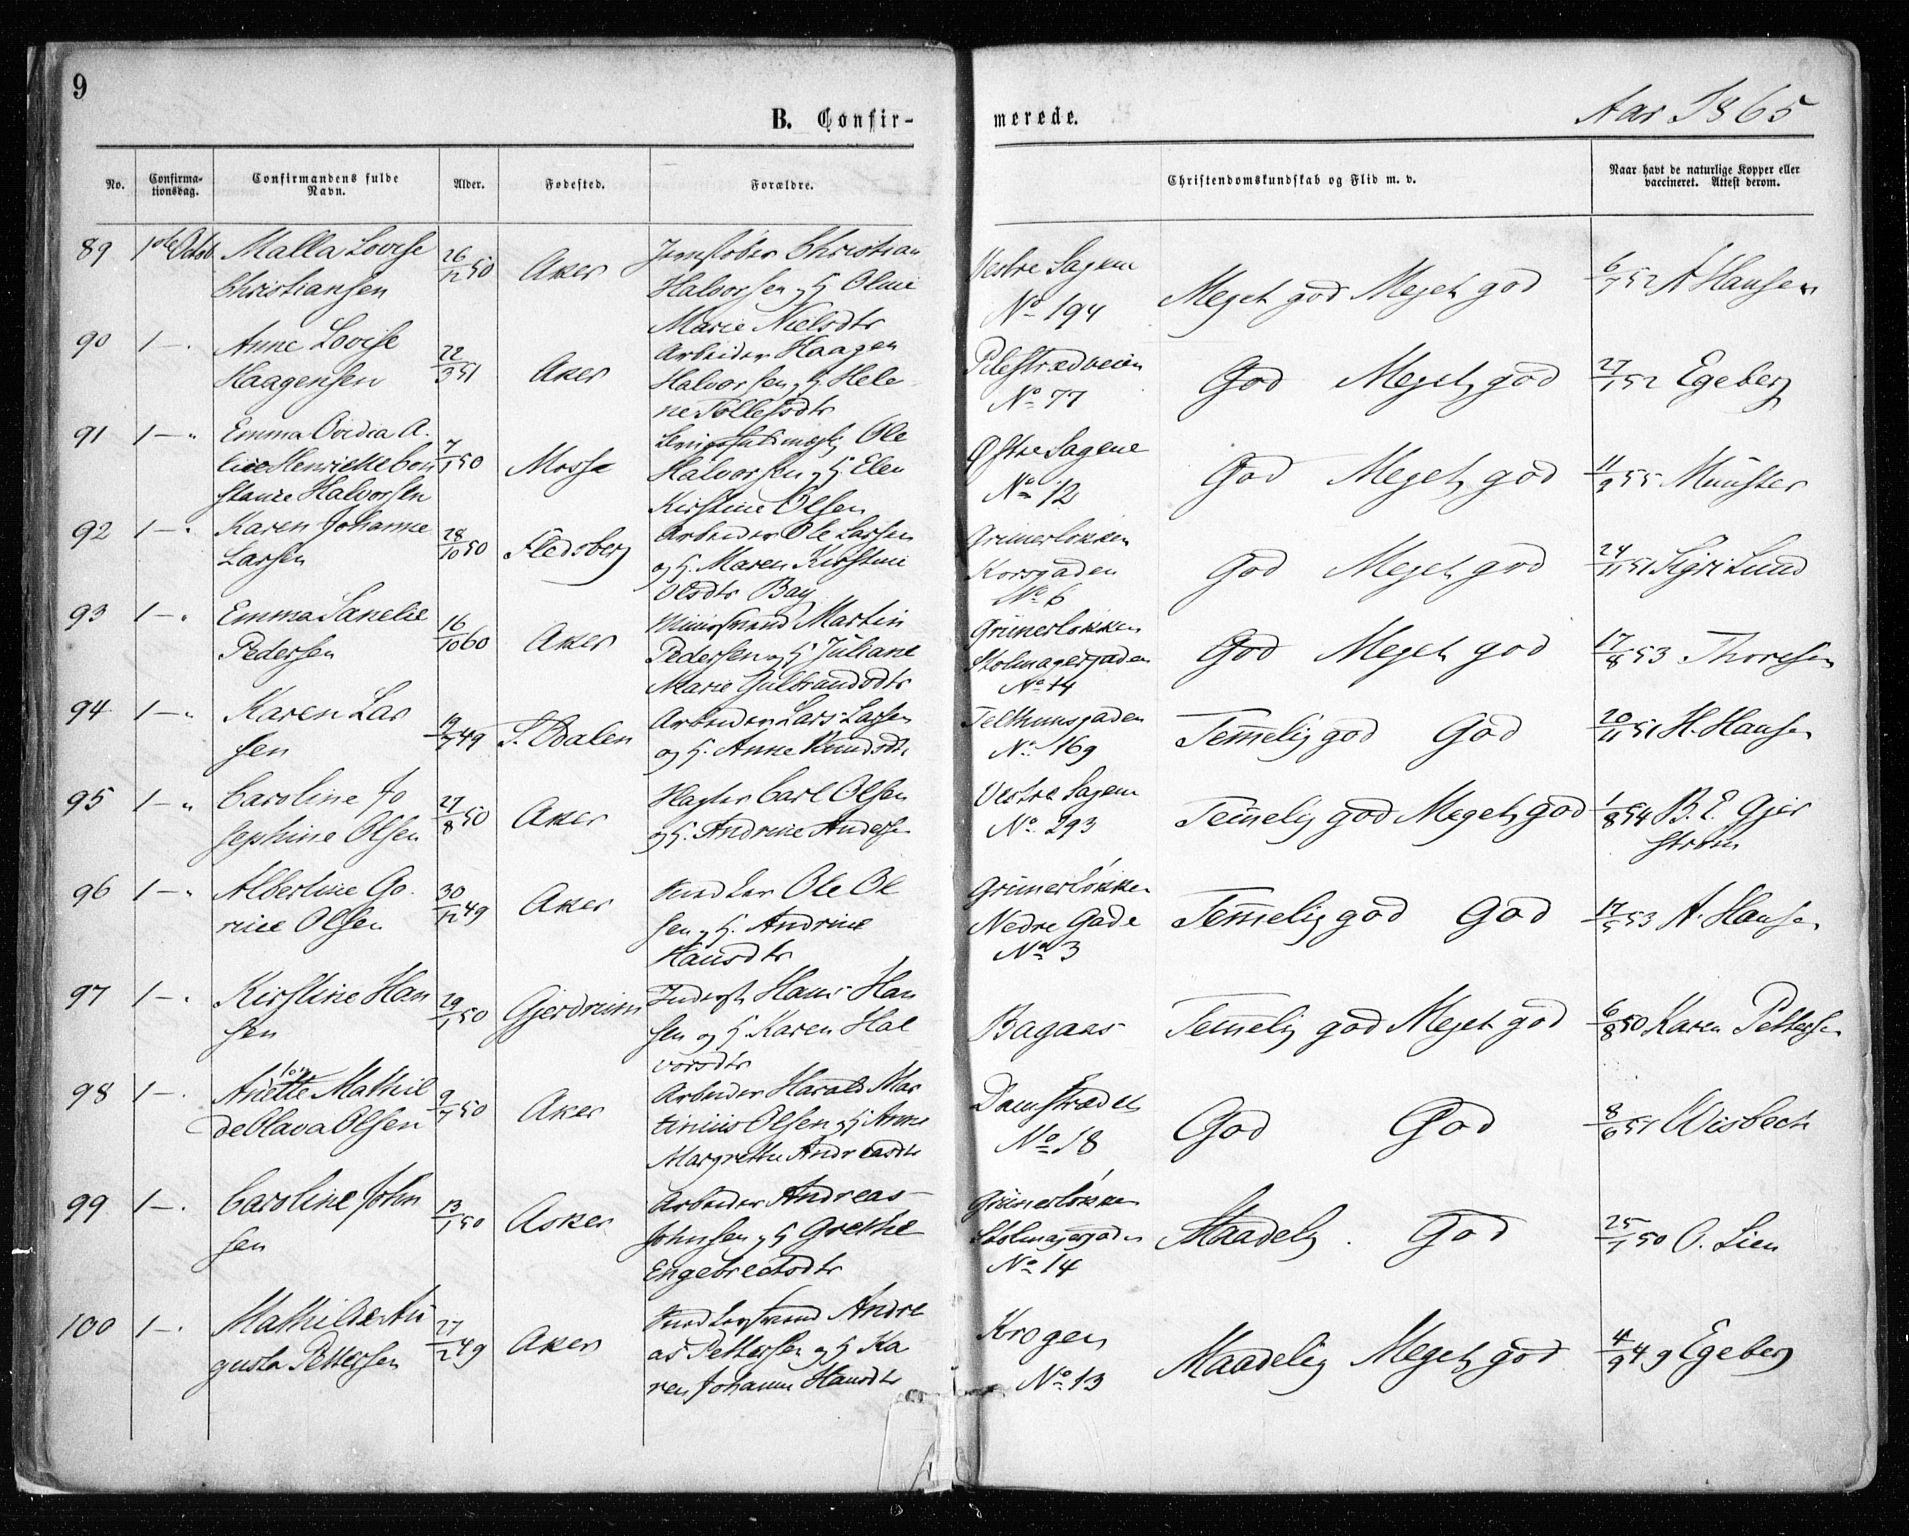 9
B. Confir-
merede.
Aar 1865
No.
Confirma-
tionsdag.
Confirmandens fulde
Navn.
Alder.
Fødested.
Forældre.
Christendomskundskab og Flid m. v.
Naar havt de naturlige Kopper eller
vaccineret. Attest derom.
89 1ste Octob Malla Lovise
Christiansen
26/12 50 Aker
Christian
Halvorsen og H Oline
Marie Nielsdtr
Vestre Sagene
No 194
Meget god Meget god
6/7 52 A Hansen
90 1 —. Anne Lovise
Haagensen
22/3 51 Aker
Arbeider Haagen
Halvorsen og H Hele
ne Tollefsdtr
Pilestrædveien
No 77
God Meget god
27/1 52 Egeberg
91 1 — " Emma Ovidia A.
lice Henriette Con
stance Halvorsen
7/1 50 Mosse
Ole
Halvorsen og H Elen
Kirstine Olsen
Østre Sagene
No 12
God Meget god
11/9 55 Münster
92 1 — " Karen Johanne
Larsen
28/10 50 Fledsberg
Arbeider Ole Larsen
og H. Maren Kirstine
Olsdtr Bay
Grünerløkken
Korsgaden
No 6
God Meget god
24/11 51 Sigri Lund
93 1 — " Emma Sanelie
Pedersen
16/10 60 Aker
Martin
Pedersen og H Juliane
Marie Gulbrandsdtr
Grünerløkken
Stolmagergaden
No 14
God Meget god
17/8 53 Thoresen
94 1 — " Karen Lar
sen
19/7 49 S. Odalen
Arbeider Lars Larsen
og H. Anne Knudsdtr
Telthusgaden
No 169
Temmelig god God
20/11 51 H. Hansen
95 1 — " Caroline Jo
sephine Olsen
27/8 50 Aker
Slagter Carl Olsen
og H. Andrine Andersen
Vestre Sagene
No 293
Temmelig god Meget god
1/8 54 B. E. Gjer
strøm
96 1 — " Albertine Go.
rine Olsen
30/12 49 Aker
Ole Ol
sen og H. Andrine
Hansdtr
Grünerløkken
Nedre Gade
No 3
Temmelig god God
17/5 53 A. Hansen
97 1 —. Kirstine Han
sen
29/1 50 Gjerdrum
Inderst Hans Han
sen og H Karen Hal
vorsdtr
Bagaas
Temmelig god Meget god
6/8 50 Karen Pettersen
98 1 —. Anette Mathil
de Olava Olsen
9/7 50 Aker
Arbeider Harald Mar
tinius Olsen og H Anne
Margrethe Andreasdtr
Damstrædet
No 18
God God
8/6 51 Wisbech
99 1 —. Caroline John
sen
13/1 50 Asker
Arbeider Andreas
Johnsen og H Grethe
Engebretsdtr
Grünerløkken
Stolmagergaden
No 14
Maadelig. God
25/7 50 O. Lien
100 1 —. Mathilde Au
gusta Pettersen
27/2 49 Aker
Andre
as Pettersen og H Ka
ren Johanne Hansdtr
Krogen
No 13
Maadelig Meget god
4/9 49 Egeberg